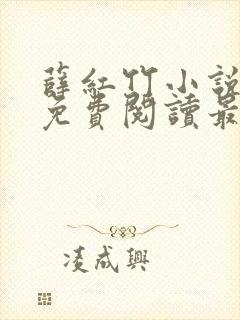 薛紅竹小說
免費閱讀最
凌成興